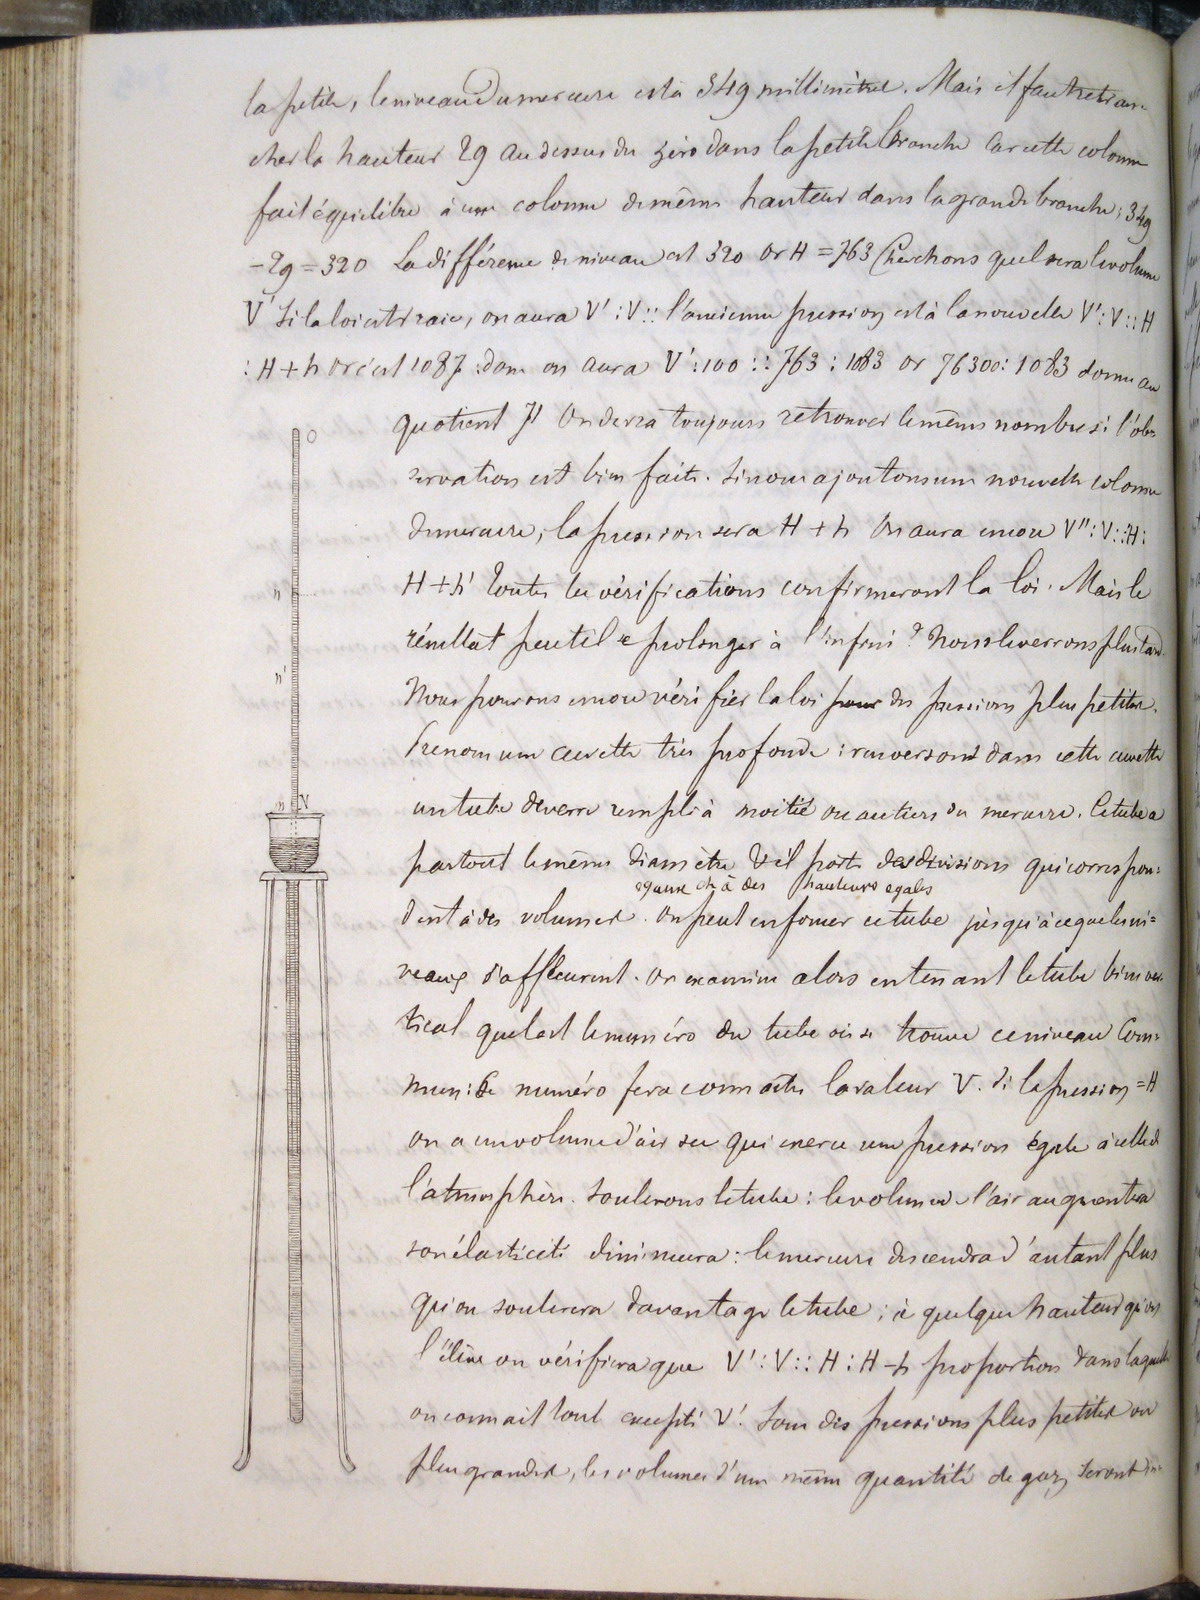 la petite, le niveau du mercure est à 349 millimètres. Mais il faut retran-
cher la hauteur 29 au dessus du zéro dans la petite branche car cette colonne
fait équilibre à une colonne de même hauteur dans la grande branche ; 349
-29 = 320 La différence de niveau est 320 or H = 763 Cherchons quel sera le volume
V' si la loi est vraie, on aura V' : V :: l'ancienne pression est à la nouvelle V' : V :: H
: H + h or c'est 1087 : donc on aura V' : 100 :: 763 : 1083 or 76300 : 1083 donne au
quotient 71 On devra toujours retrouver le même nombre si l'ob-
servation est bien faite. Si nous ajoutons une nouvelle colonne
de mercure, la pression sera H + h On aura encore V" : V :: H :
H + h' Toutes les vérifications confirmeront la loi. Mais le
résultat peut il se prolonger à l'infini ? Nous le verrons plus tard.
Nous pouvons encore vérifier la loi pour des pressions plus petites.
Prenons une cuvette très profonde : renversons dans cette cuvette
un tube de verre rempli à moitié ou au tiers de mercure. Ce tube a
partout le même diamètre & il porte des divisions qui correspon=
egaux et à des hauteurs egales
dent à des volumes. On peut enfoncer ce tube jusqu'à ce que les ni=
veaux s'affleurent. On examine alors en tenant le tube bien ver-
tical quel est le numéro du tube où se trouve ce niveau com=
mun : Ce numéro fera connaître la valeur V. Si la pression = H
on a un volume d'air sec qui exerce une pression égale à celle de
l'atmosphère. Soulevons le tube : le volume de l'air augmentera
son élasticité diminuera : le mercure descendra d'autant plus
qu'on soulèvera davantage le tube ; à quelque hauteur qu'on
l'élève on vérifiera que V' : V :: H : H - h proportion dans laquelle
on connait tout excepté V'. Sous des pressions plus petites ou
plus grandes, les volumes d'une même quantité de gaz seront in-
O
n
n'
m N